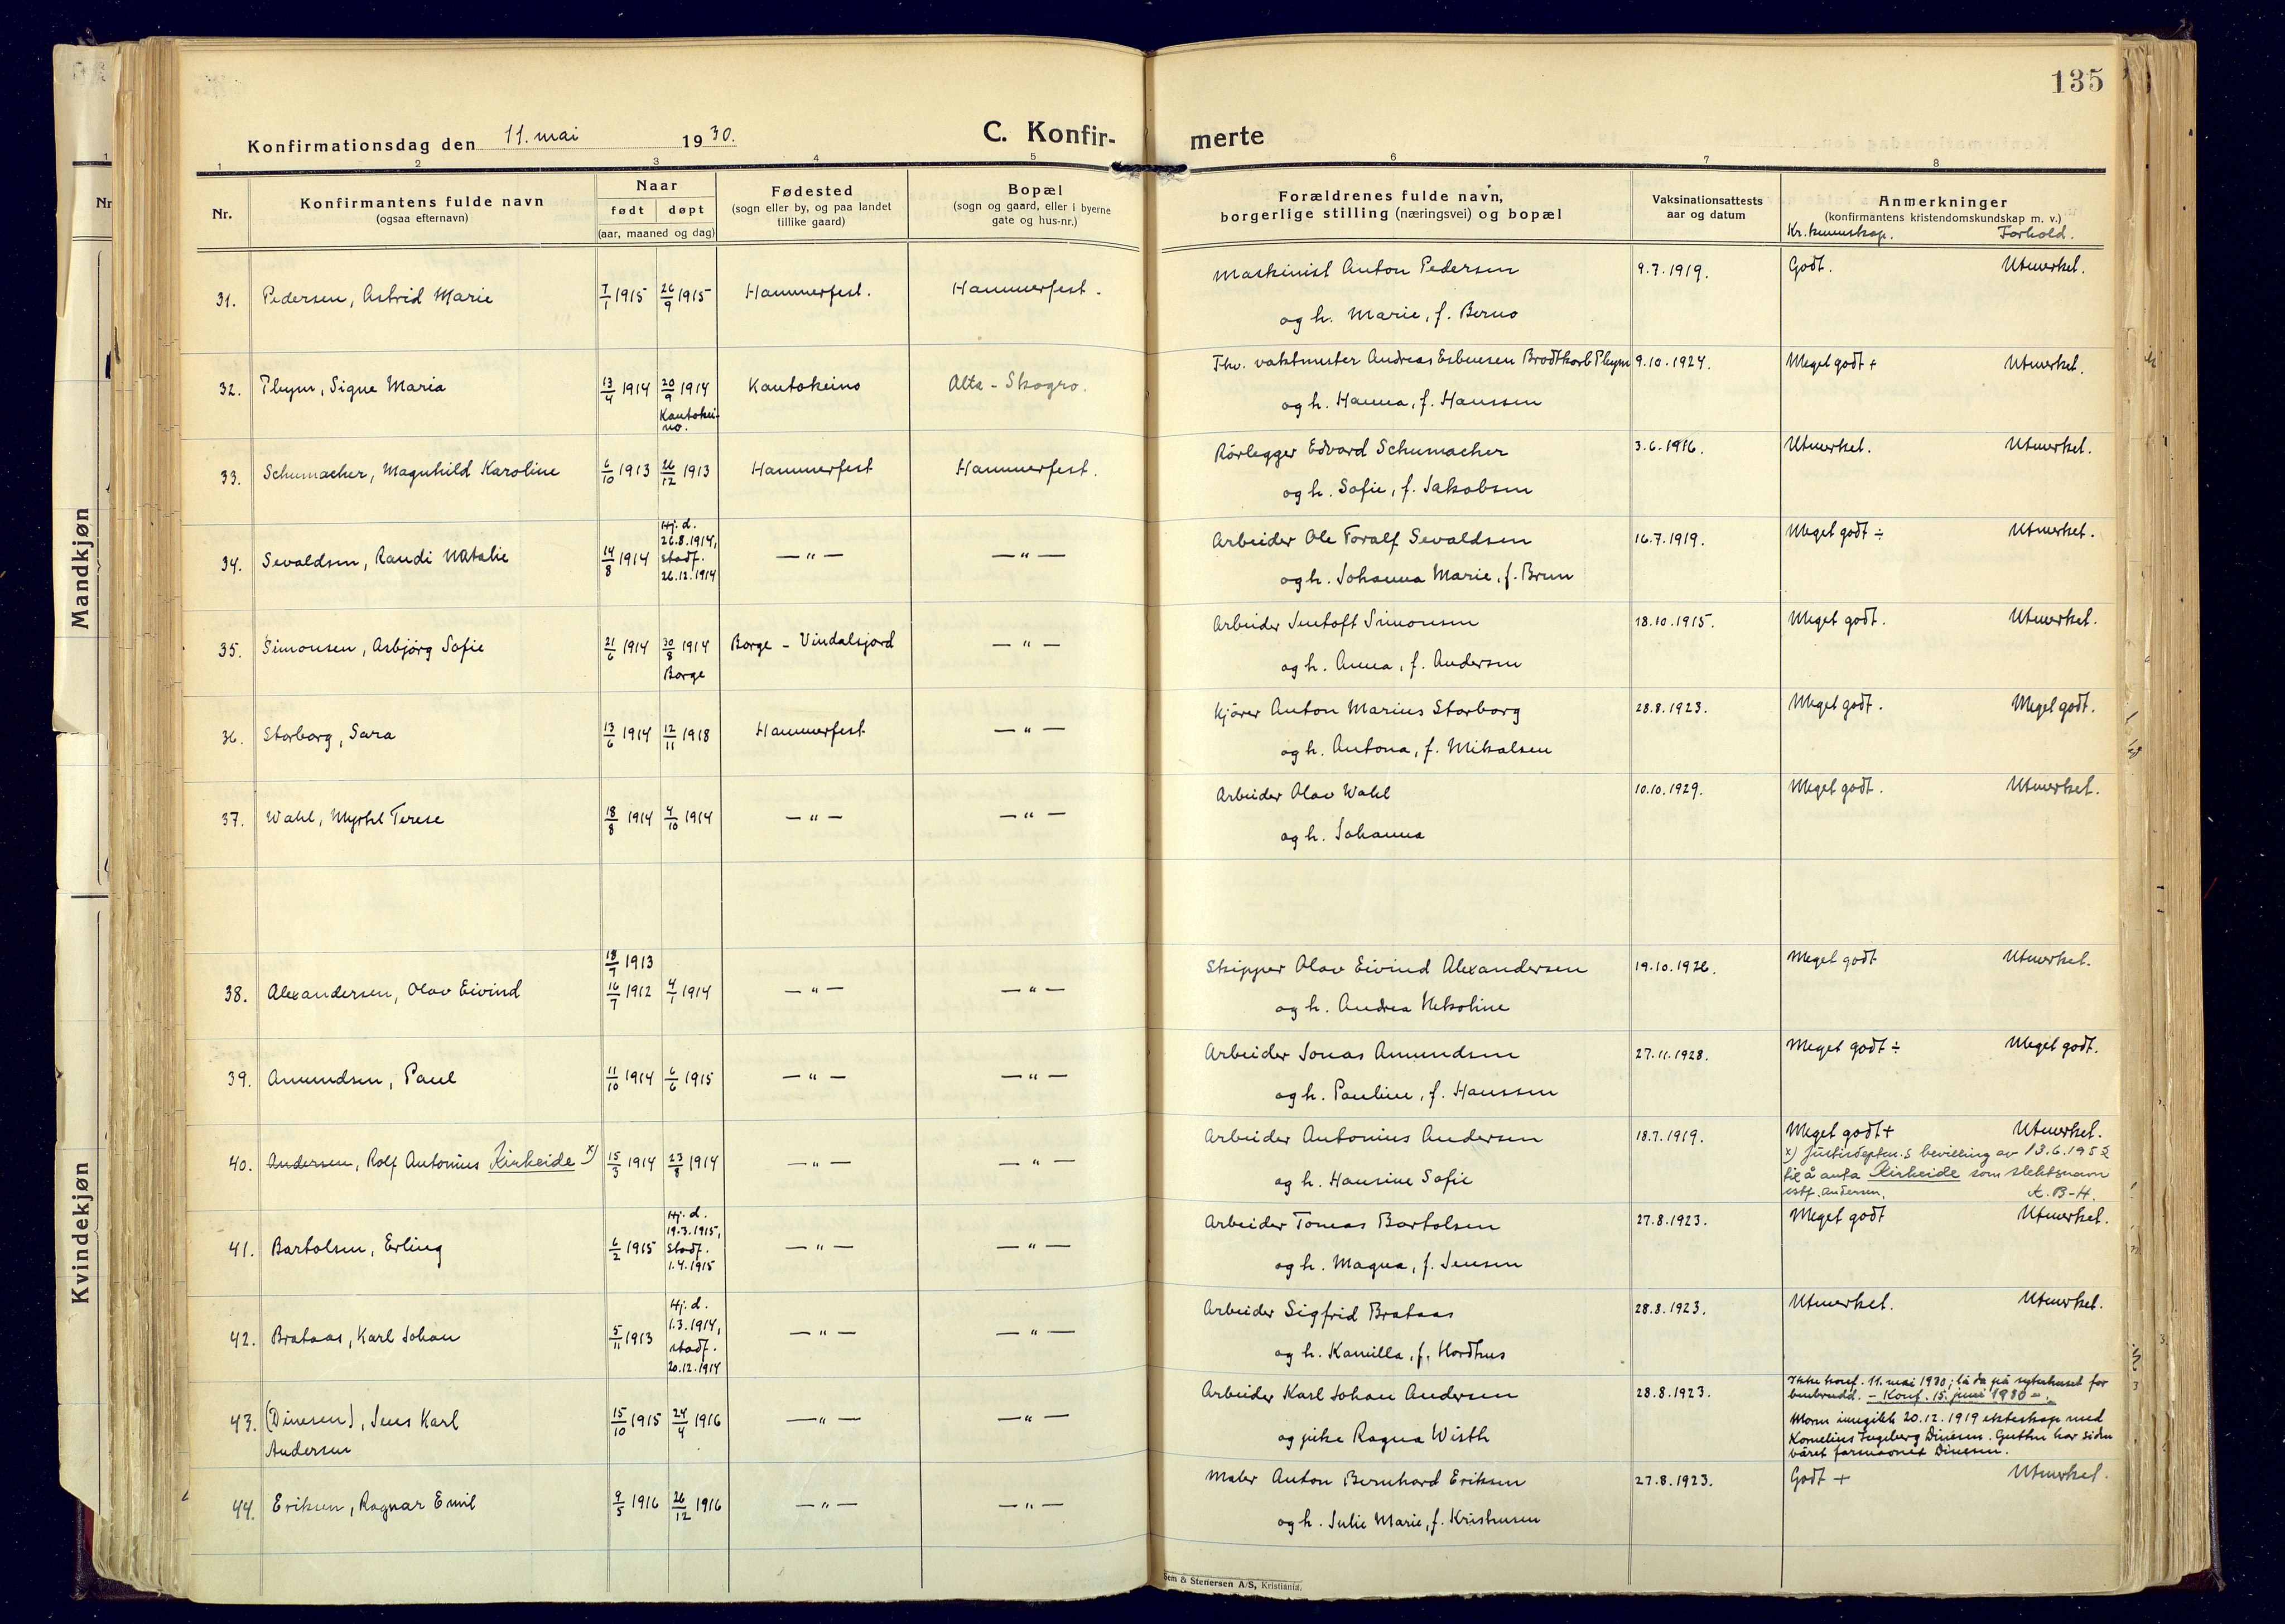 135
Konfirmationsdag den 11. mai 1930.
C. Konfir-
merte
1 2 3 4 5 6 7 8
Nr.
Konfirmantens fulde navn
(ogsaa efternavn)
Naar
født døpt
(aar, maaned og dag)
Fødested
(sogn eller by, og paa landet
tillike gaard)
Bopæl
(sogn og gaard, eller i byerne
gate og hus-nr.)
Forældrenes fulde navn,
borgerlige stilling (næringsvei) og bopæl
Vaksinationsattests
aar og datum
Anmerkninger
(konfirmantens kristendomskundskap m. v.)
Kr. kunnskap. Forhold.
Mandkjøn
Kvindekjøn
31. Pedersen, Astrid Marie 7/1 1915 26/9 1915 Hammerfest. Hammerfest.
Maskinist Anton Pedersen 9.7.1919. Godt. Utmerket.
og h. Marie, f. Berno
32. Pleym, Signe Maria 13/4 1914 20/9 1914 Kautokeino Alta - Skogro.
Kautokei-
no.
Fhv. vaktmester Andreas Esbensen Brodtkorb Pleym 9.10.1924. Meget godt + Utmerket.
og h. Hanna, f. Hanssen
33. Schumacher, Magnhild Karoline 6/10 1913 26/12 1913 Hammerfest Hammerfest.
Rörlegger Edvard Schumacher 3.6.1916. Utmerket. Utmerket.
og h. Sofie, f. Jakobsen
Hj. d.
26.8.1914,
34. Sevaldsen, Randi Natalie 14/8 1914 stadf. — " — — " —
26.12.1914
Arbeider Ole Toralf Sevaldsen 16.7.1919. Meget godt ÷ Utmerket.
og h. Johanna Marie, f. Brun
35. Simonsen, Asbjörg Sofie 21/6 1914 30/8 1914 Borge - Vindalsjord — " —
Borge
Arbeider Jentoft Simonsen 18.10.1915. Meget godt. Utmerket.
og h. Anna, f. Andersen
36. Storborg, Sara 13/6 1914 12/11 1918 Hammerfest — " —
Kjörer Anton Marius Storborg 28.8.1923. Meget godt. Meget godt.
og h. Antona, f. Mikalsen
37. Wahl, Myrtel Terese 18/8 1914 4/10 1914 — " — — " —
Arbeider Olav Wahl 10.10.1929. Meget godt. Utmerket.
og h. Johanna
18/7 1913
38. Alexandersen, Olav Eivind 16/7 1912 4/1 1914 — " — — " —
Skipper Olav Eivind Alexandersen 19.10.1926. Meget godt Utmerket.
og h. Andrea Nekoline
39. Amundsen, Paul 11/10 1914 6/6 1915 — " — — " —
Arbeider Jonas Amundsen 27.11.1928. Meget godt ÷ Meget godt.
og h. Pauline, f. Hanssen
40. Andersen, Rolf Antonius Kirkeide x) 15/3 1914 23/8 1914 — " — — " —
Arbeider Antonius Andersen 18.7.1919. Meget godt + Utmerket.
og h. Hansine Sofie
x) Justisdeptem.s bevilling av 13.6.1952
til å anta Kirkeide som slektsnavn
istf. Andersen. A. B-H.
Hj. d.
19.3.1915,
41. Bartolsen, Erling 6/2 1915 stadf. — " — — " —
1.4.1915
Arbeider Tomas Bartolsen 27.8.1923. Meget godt Utmerket.
og h. Magna, f. Jensen
Hj. d.
1.3.1914,
42. Brataas, Karl Johan 5/11 1913 stadf. — " — — " —
20.12.1914
Arbeider Sigfrid Brataas 28.8.1923. Utmerket. Utmerket.
og h. Kamilla, f. Nordhus
43. (Dinesen), Jens Karl 15/10 1915 24/4 1916 — " — — " —
Andersen
Arbeider Karl Johan Andersen 28.8.1923.
og pike Ragna Wisth
Ikke konf. 11. mai 1930; lå da på sykehuset for
benbrudd. - Konf. 15. juni 1930 -.
Moren inngikk 20.12.1919 ekteskap med
Kornelius Ingeberg Dinesen. Gutten har siden
været Dinesen.
44. Eriksen, Ragnar Emil 9/5 1916 26/12 1916 — " — — " —
Maler Anton Bernhard Eriksen 27.8.1923. Godt + Utmerket.
og h. Julie Marie, f. Kristensen
Sem & Stenersen A/S, Kristiania.